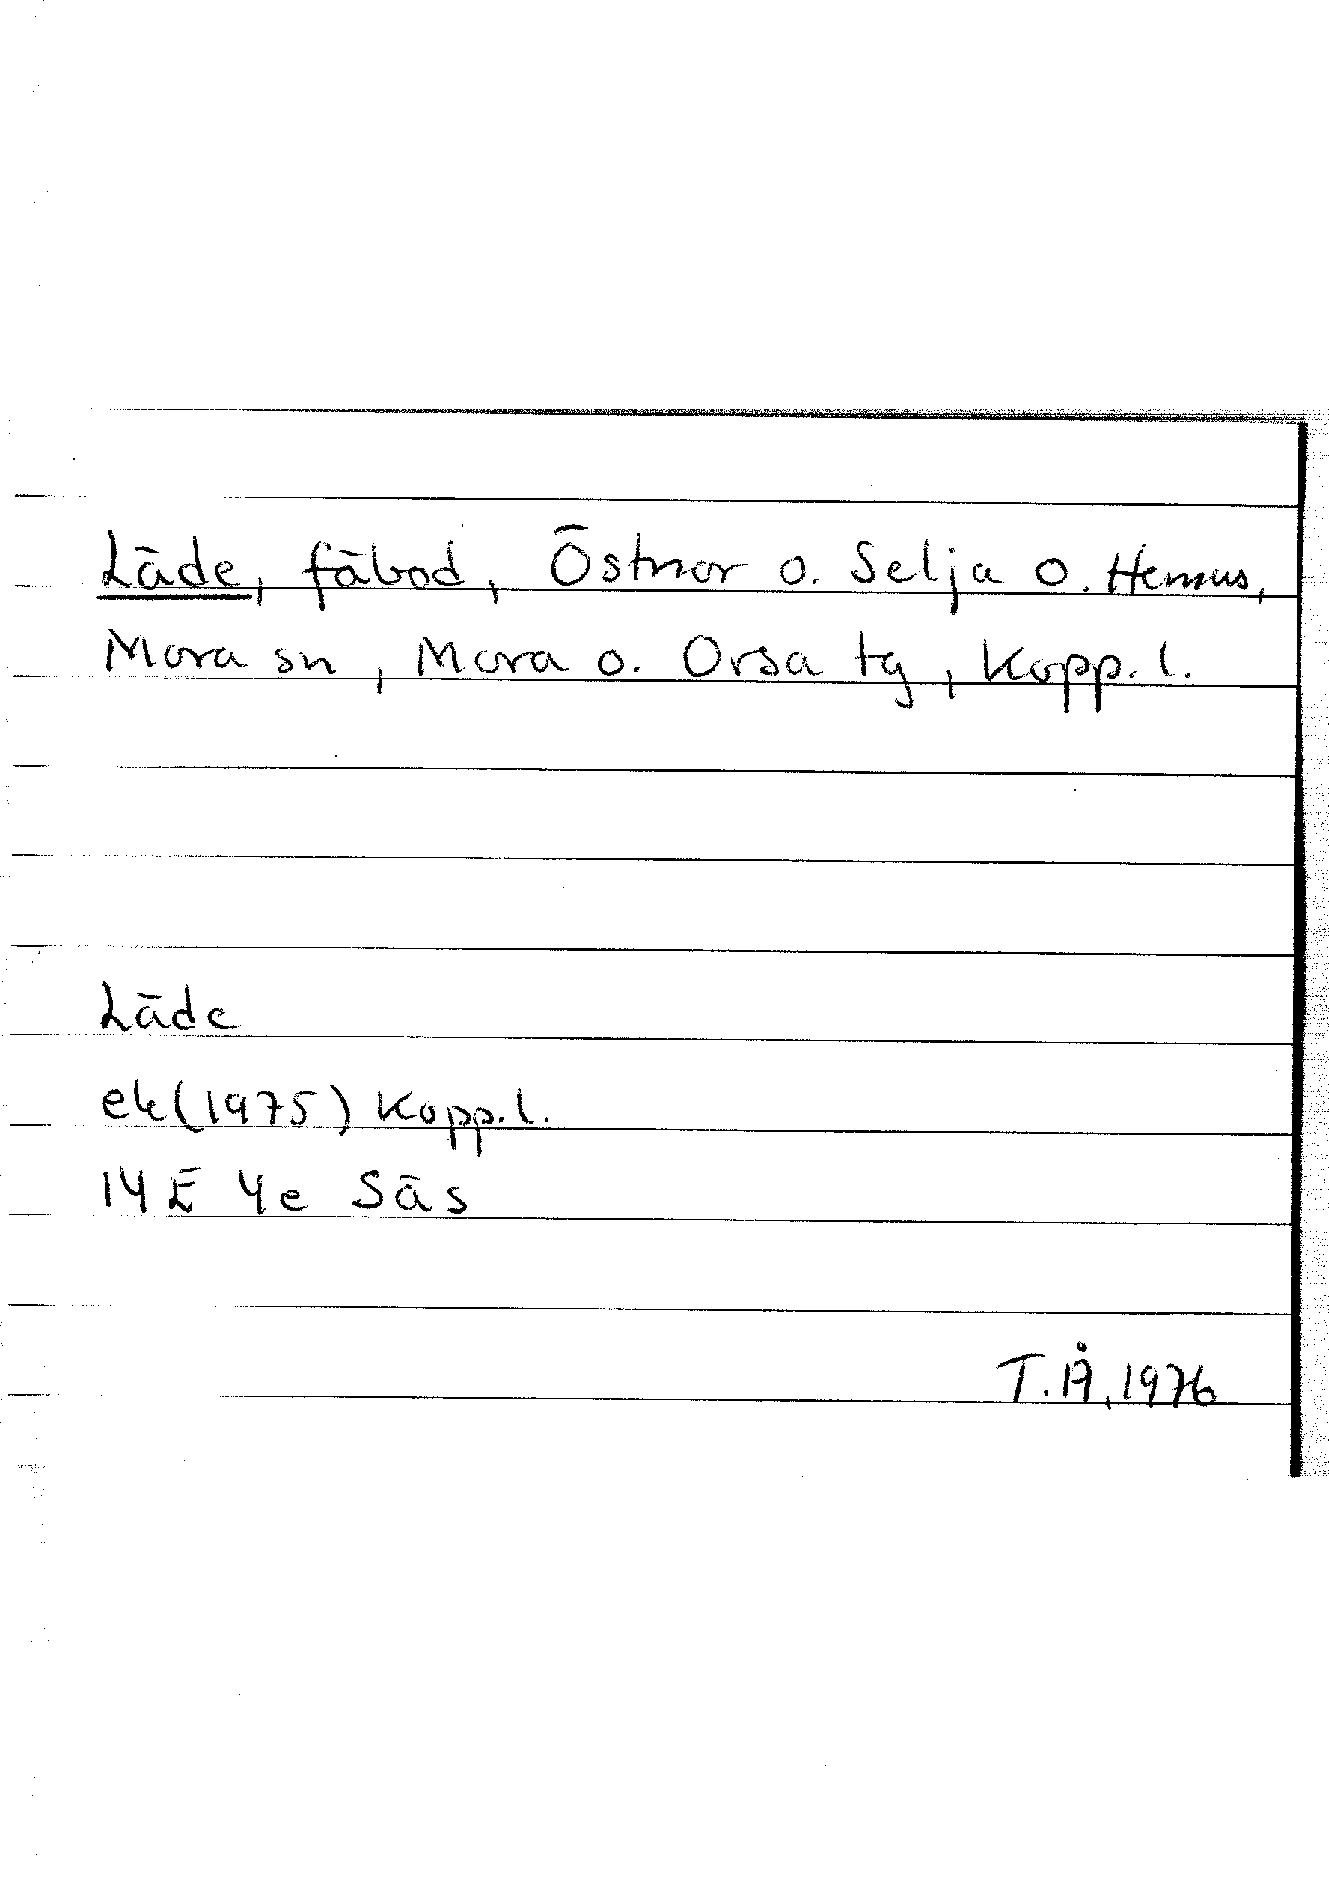 Läde, fäbod, Östnor o. Selja o. Hemus,
Mora sn, Mora o. Orsa tg, Kopp. l.
Läde
ek (1975) Kopp. l.
14 E 4e Säs
T. Å, 1976